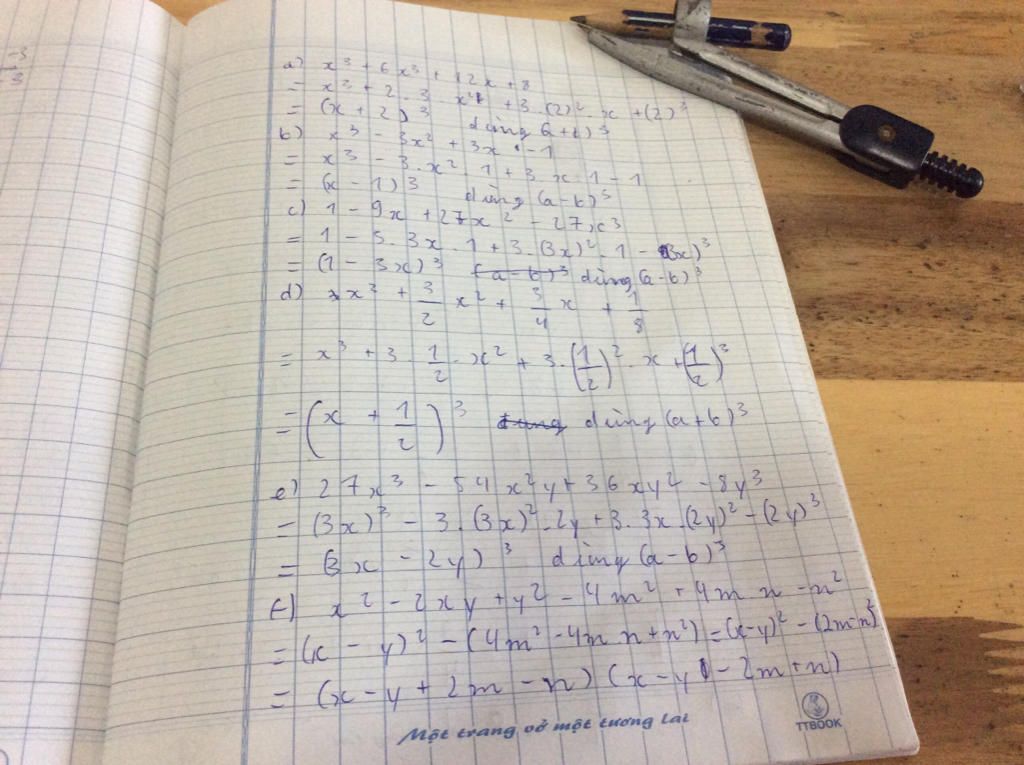 -3
3
a) x³ + 6x³ + 12x + 8
= x³ + 2 . 3 . x² + 3 . (2)² . x + (2)³
= (x + 2)³ dùng (a + b)³
b) x³ - 3x² + 3x - 1
= x³ - 3 . x² . 1 + 3 . x . 1 - 1
= (x - 1)³ dùng (a - b)³
c) 1 - 9x + 27x² - 27x³
= 1 - 3 . 3x . 1 + 3 . (3x)² . 1 - (3x)³
= (1 - 3x)³ (a - b)³ dùng (a - b)³
d) x³ + 3/2 x² + 3/4 x + 1/8
= x³ + 3 . 1/2 . x² + 3 . (1/2)² . x + (1/2)³
= (x + 1/2)³ dùng dùng (a + b)³
e) 27x³ - 54x²y + 36xy² - 8y³
= (3x)³ - 3 . (3x)² . 2y + 3 . 3x . (2y)² - (2y)³
= (3x - 2y)³ dùng (a - b)³
f) x² - 2xy + y² - 4m² + 4mn - n²
= (x - y)² - (4m² - 4mn + n²) = (x - y)² - (2m - n)²
= (x - y + 2m - n) (x - y - 2m + n)
Một trang vở một tương lai
TTBOOK